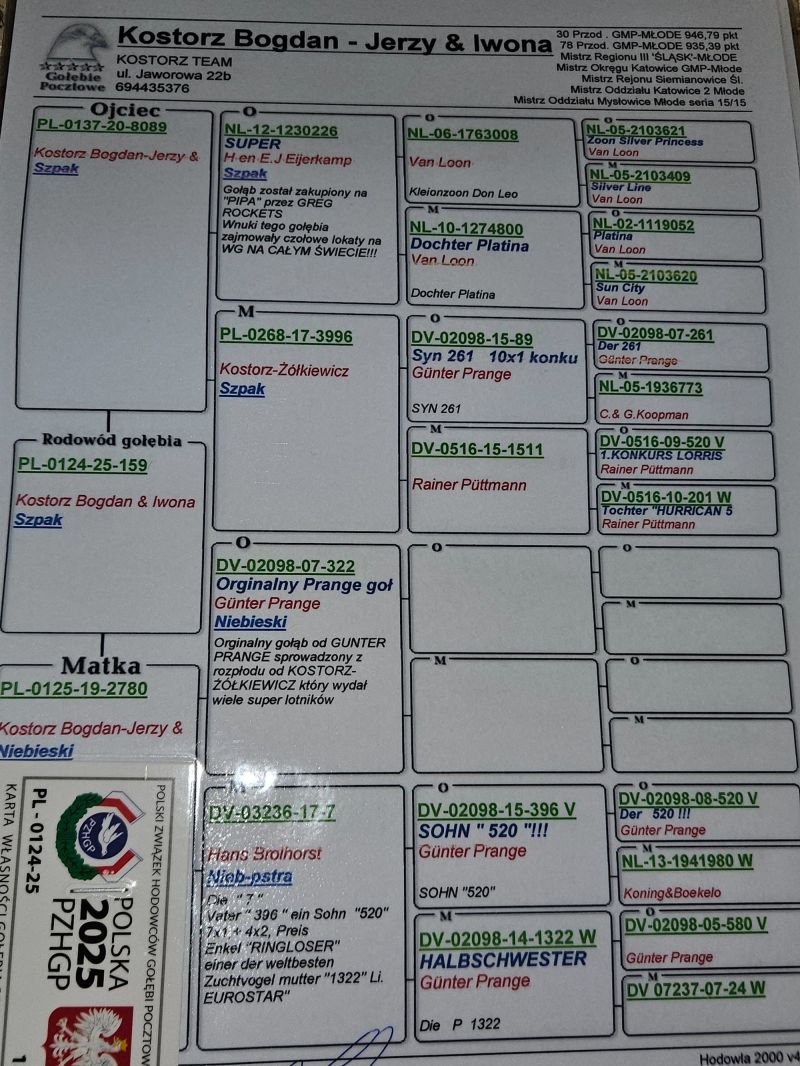 Kostorz Bogdan - Jerzy & Iwona
KOSTORZ TEAM
ul. Jaworowa 22b
694435376
Gołębie
Pocztowe
30 Przod . GMP-MŁODE 946,79 pkt
76 Przod. GMP-MŁODE 935,39 pkt
Mistrz Regionu III 'ŚLĄSK'-MŁODE
Mistrz Okręgu Katowice GMP-Młode
Mistrz Rejonu Siemianowice Śl.
Mistrz Oddziału Katowice 2 Młode
Mistrz Oddziału Mysłowice Młode seria 15/15
Ojciec
PL-0137-20-8089
Kostorz Bogdan-Jerzy &
Szpak
Rodowód gołębia
PL-0124-25-159
Kostorz Bogdan & Iwona
Szpak
Matka
PL-0125-19-2780
Kostorz Bogdan-Jerzy &
Niebieski
O
NL-12-1230226
SUPER
H en E.J Eijerkamp
Szpak
Gołąb został zakupiony na
"PIPA" przez GREG
ROCKETS
Wnuki tego gołębia
zajmowały czołowe lokaty na
WG NA CAŁYM ŚWIECIE!!!
M
PL-0268-17-3996
Kostorz-Żółkiewicz
Szpak
O
DV-02098-07-322
Orginalny Prange goł
Günter Prange
Niebieski
Orginalny gołąb od GUNTER
PRANGE sprowadzony z
rozpłodu od KOSTORZ-
ŻÓŁKIEWICZ który wydał
wiele super lotników
M
DV-03236-17-7
Hans Brolhorst
Nieb-pstra
Die " 7 "
Vater " 396 " ein Sohn "520"
7x1 + 4x2, Preis
Enkel "RINGLOSER"
einer der weltbesten
Zuchtvogel mutter "1322" Li.
EUROSTAR"
O
NL-06-1763008
Van Loon
Kleionzoon Don Leo
M
NL-10-1274800
Dochter Platina
Van Loon
Dochter Platina
O
DV-02098-15-89
Syn 261 10x1 konku
Günter Prange
SYN 261
M
DV-0516-15-1511
Rainer Püttmann
O
M
O
DV-02098-15-396 V
SOHN " 520 "!!!
Günter Prange
SOHN "520"
M
DV-02098-14-1322 W
HALBSCHWESTER
Günter Prange
Die P 1322
O
NL-05-2103621
Zoon Silver Princess
Van Loon
M
NL-05-2103409
Silver Line
Van Loon
O
NL-02-1119052
Platina
Van Loon
M
NL-05-2103620
Sun City
Van Loon
O
DV-02098-07-261
Der 261
Günter Prange
M
NL-05-1936773
C.& G.Koopman
O
DV-0516-09-520 V
1.KONKURS LORRIS
Rainer Püttmann
M
DV-0516-10-201 W
Tochter "HURRICAN 5
Rainer Püttmann
O
M
O
M
O
DV-02098-08-520 V
Der 520 !!!
Günter Prange
M
NL-13-1941980 W
Koning&Boekelo
O
DV-02098-05-580 V
Günter Prange
M
DV 07237-07-24 W
Hodowla 2000 v4
POLSKI ZWIĄZEK HODOWCÓW GOŁĘBI POCZTOW
PZHGP
POLSKA
2025
PZHGP
PL - 0124-25
KARTA WŁASNOŚCI GOŁĘBIA
1